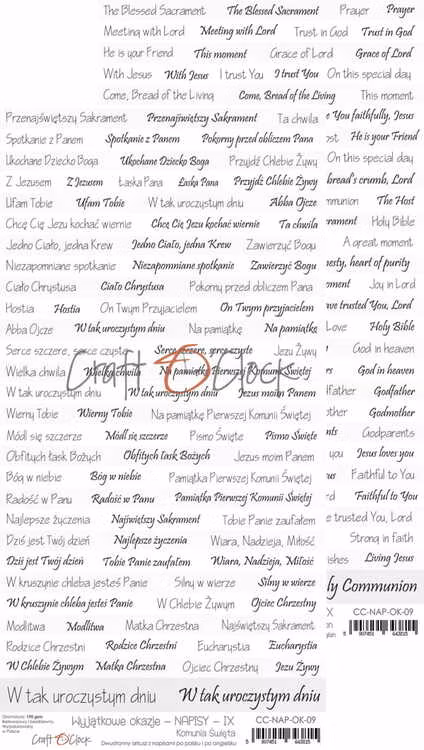 The Blessed Sacrament The Blessed Sacrament Prayer Prayer
Meeting with Lord Meeting with Lord Trust in God Trust in God
He is your Friend This moment Grace of Lord Grace of Lord
With Jesus With Jesus I trust You I trust You On this special day
Come, Bread of the Living Come, Bread of the Living This moment
Przenajświętszy Sakrament Przenajświętszy Sakrament Ta chwila
e You faithfully, Jesus
Spotkanie z Panem Spotkanie z Panem Pokorny przed obliczem Pana
st He is your Friend
Ukochane Dziecko Boga Ukochane Dziecko Boga Przyjdź Chlebie Żywy
On this special day
Z Jezusem Z Jezusem Łaska Pana Łaska Pana Przyjdź Chlebie Żywy
bread's crumb, Lord
Ufam Tobie Ufam Tobie W tak uroczystym dniu Abba Ojcze
ommunion The Host
Chcę Cię Jezu kochać wiernie Chcę Cię Jezu kochać wiernie Ta chwila
rament Holy Bible
Jedno Ciało, jedna Krew Jedno Ciało, jedna Krew Zawierzyć Bogu
A great moment
Niezapomniane spotkanie Niezapomniane spotkanie Zawierzyć Bogu
nesty, heart of purity
Ciało Chrystusa Ciało Chrystusa Pokorny przed obliczem Pana
ment Joy in Lord
Hostia Hostia On Twym Przyjacielem On Twym przyjacielem
ve trusted You, Lord
Abba Ojcze W tak uroczystym dniu Na pamiątkę Na pamiątkę
Love Holy Bible
Serce szczere, serce czyste Serce szczere, serce czyste Jezu Żywy
God in heaven
Wielka chwila Wielka chwila Na pamiątkę Pierwszej Komunii Świętej
God in heaven
Craft O'Clock
W tak uroczystym dniu W tak uroczystym dniu Jezus moim Panem
father Godfather
Wierny Tobie Wierny Tobie Na pamiątkę Pierwszej Komunii Świętej
Godmother
Módl się szczerze Módl się szczerze Pismo Święte Pismo Święte
Godparents
Obfitych łask Bożych Obfitych łask Bożych Jezus moim Panem
you Jesus loves you
Bóg w niebie Bóg w niebie Pamiątka Pierwszej Komunii Świętej
us Faithful to You
Radość w Panu Radość w Panu Pamiątka Pierwszej Komunii Świętej
rd Faithful to You
Najlepsze życzenia Najświętszy Sakrament Tobie Panie zaufałem
e trusted You, Lord
Dziś jest Twój dzień Najlepsze życzenia Wiara, Nadzieja, Miłość
Strong in faith
Dziś jest Twój dzień Tobie Panie zaufałem Wiara, Nadzieja, Miłość
ishes Living Jesus
W kruszynie chleba jesteś Panie Silny w wierze Silny w wierze
ly Communion
W kruszynie chleba jesteś Panie W Chlebie Żywym Ojciec Chrzestny
IX CC-NAP-OK-09
Modlitwa Modlitwa Matka Chrzestna Najświętszy Sakrament
5 907451 642015
Rodzice Chrzestni Rodzice Chrzestni Eucharystia Eucharystia
W Chlebie Żywym Matka Chrzestna Ojciec Chrzestny Jezu Żywy
W tak uroczystym dniu W tak uroczystym dniu
Wyjątkowe okazje – NAPISY – IX CC-NAP-OK-09
Komunia Święta
Craft O'Clock Dwustronny arkusz z napisami po polsku i po angielsku
5 907451 642015